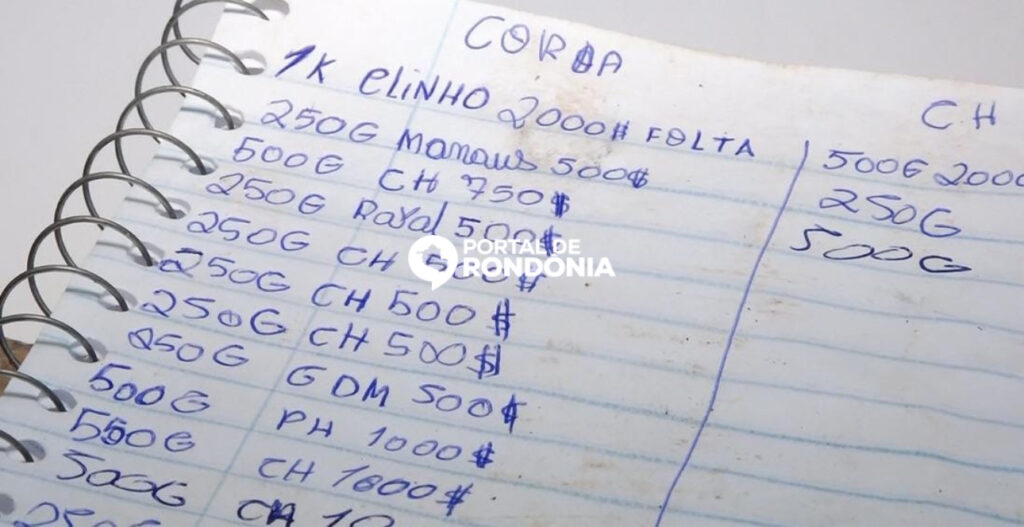 COROA
1K ELiNHO 2000$ FOLTA
250G Manaus 500$
500G CH 750$
250G Royal 500$
250G CH 500$
250G CH 500$
250G CH 500$
250G GDM 500$
500G PH 1000$
550G CH 1000$
500G CH 10
250G
CH
500G 2000
250G
500G
PORTAL DE
RONDÔNIA